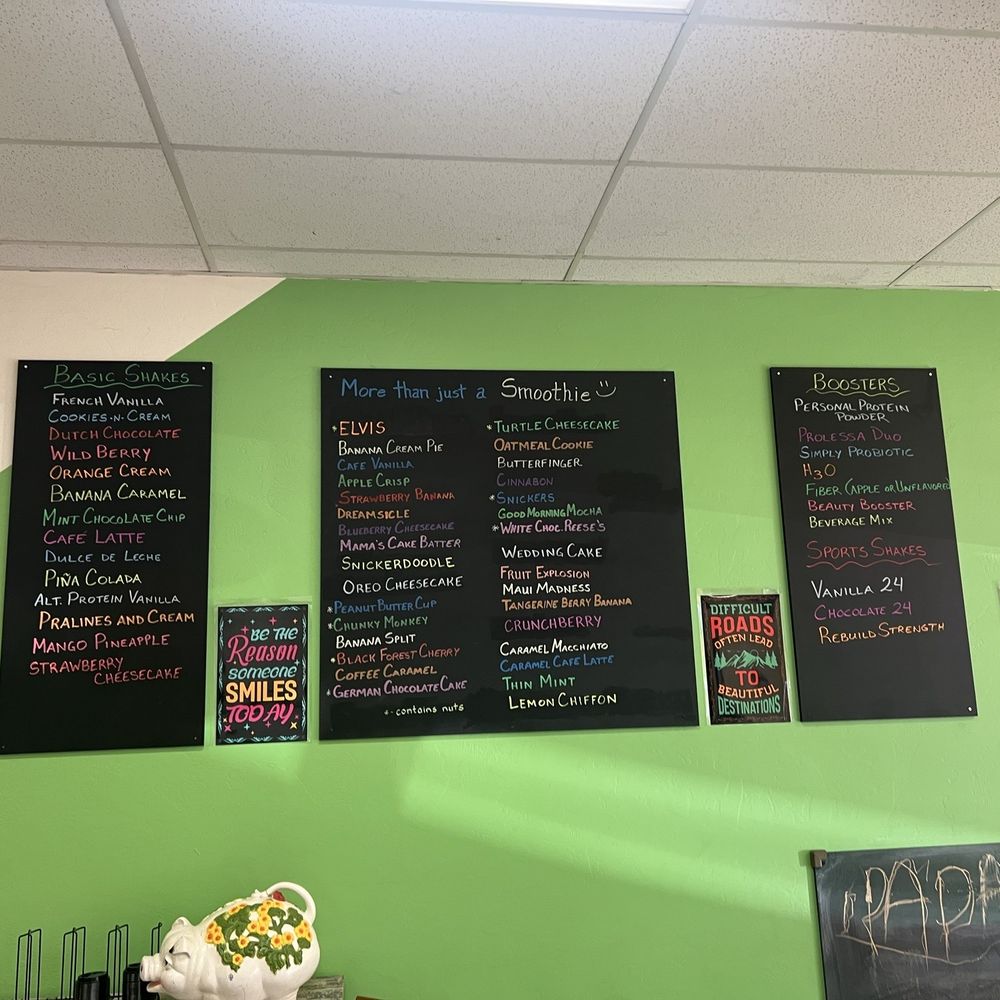 BASIC SHAKES
FRENCH VANILLA
COOKIES-N-CREAM
DUTCH CHOCOLATE
WILD BERRY
ORANGE CREAM
BANANA CARAMEL
MINT CHOCOLATE CHIP
CAFÉ LATTE
DULCE DE LECHE
PIÑA COLADA
ALT. PROTEIN VANILLA
PRALINES AND CREAM
MANGO PINEAPPLE
STRAWBERRY
CHEESECAKE
BE THE
Reason
someone
SMILES
TODAY
More than just a Smoothie
*ELVIS
BANANA CREAM PIE
CAFE VANILLA
APPLE CRISP
STRAWBERRY BANANA
DREAMSICLE
BLUEBERRY CHEESECAKE
MAMA'S CAKE BATTER
SNICKERDOODLE
OREO CHEESECAKE
*PEANUT BUTTER CUP
*CHUNKY MONKEY
BANANA SPLIT
*BLACK FOREST CHERRY
COFFEE CARAMEL
*GERMAN CHOCOLATE CAKE
*-contains nuts
*TURTLE CHEESECAKE
OATMEAL COOKIE
BUTTERFINGER
CINNABON
*SNICKERS
GOOD MORNING MOCHA
*WHITE CHOC. REESE'S
WEDDING CAKE
FRUIT EXPLOSION
MAUI MADNESS
TANGERINE BERRY BANANA
CRUNCHBERRY
CARAMEL MACCHIATO
CARAMEL CAFE LATTE
THIN MINT
LEMON CHIFFON
DIFFICULT
ROADS
OFTEN LEAD
TO
BEAUTIFUL
DESTINATIONS
BOOSTERS
PERSONAL PROTEIN
POWDER
PROLESSA DUO
SIMPLY PROBIOTIC
H3O
FIBER (APPLE OR UNFLAVORED
BEAUTY BOOSTER
BEVERAGE MIX
SPORTS SHAKES
VANILLA 24
CHOCOLATE 24
REBUILD STRENGTH